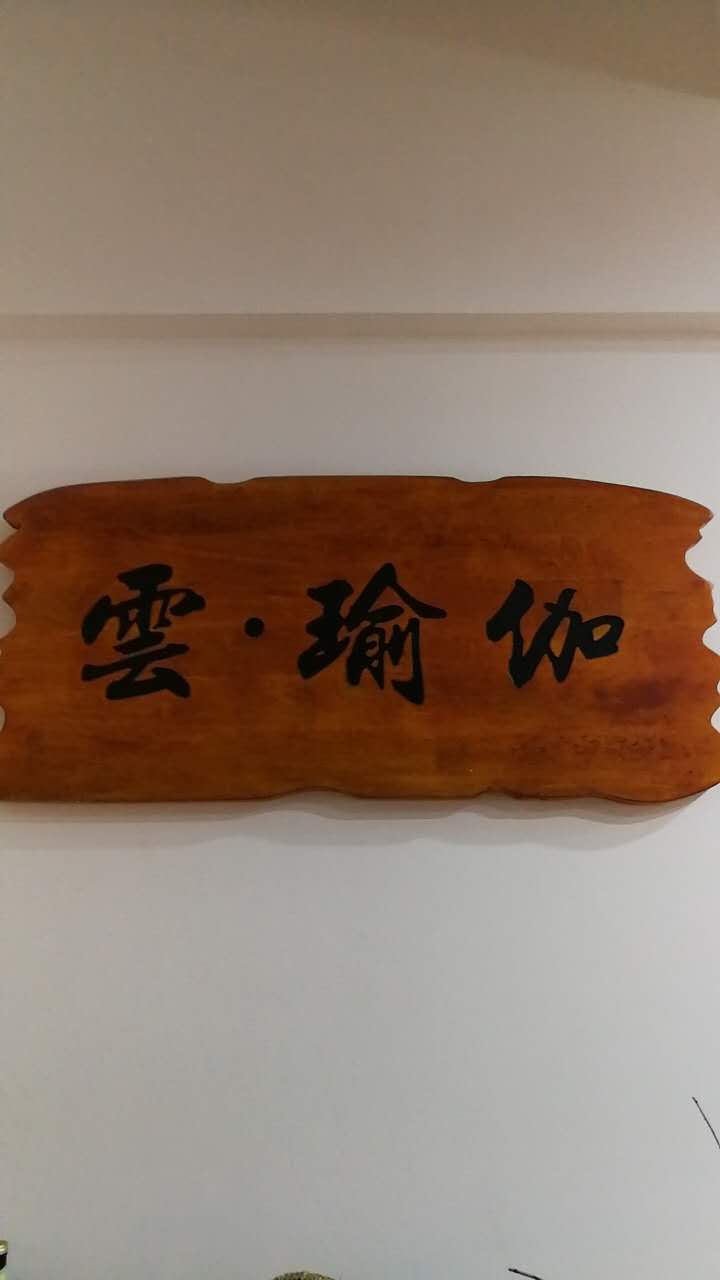 雲·瑜伽